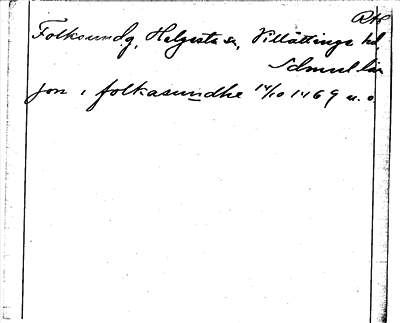 Folksundg, Helgesta sn, Villåttinge hd,
Södmanl. län
jon i folkasundhe 14/10 1469 u. o.